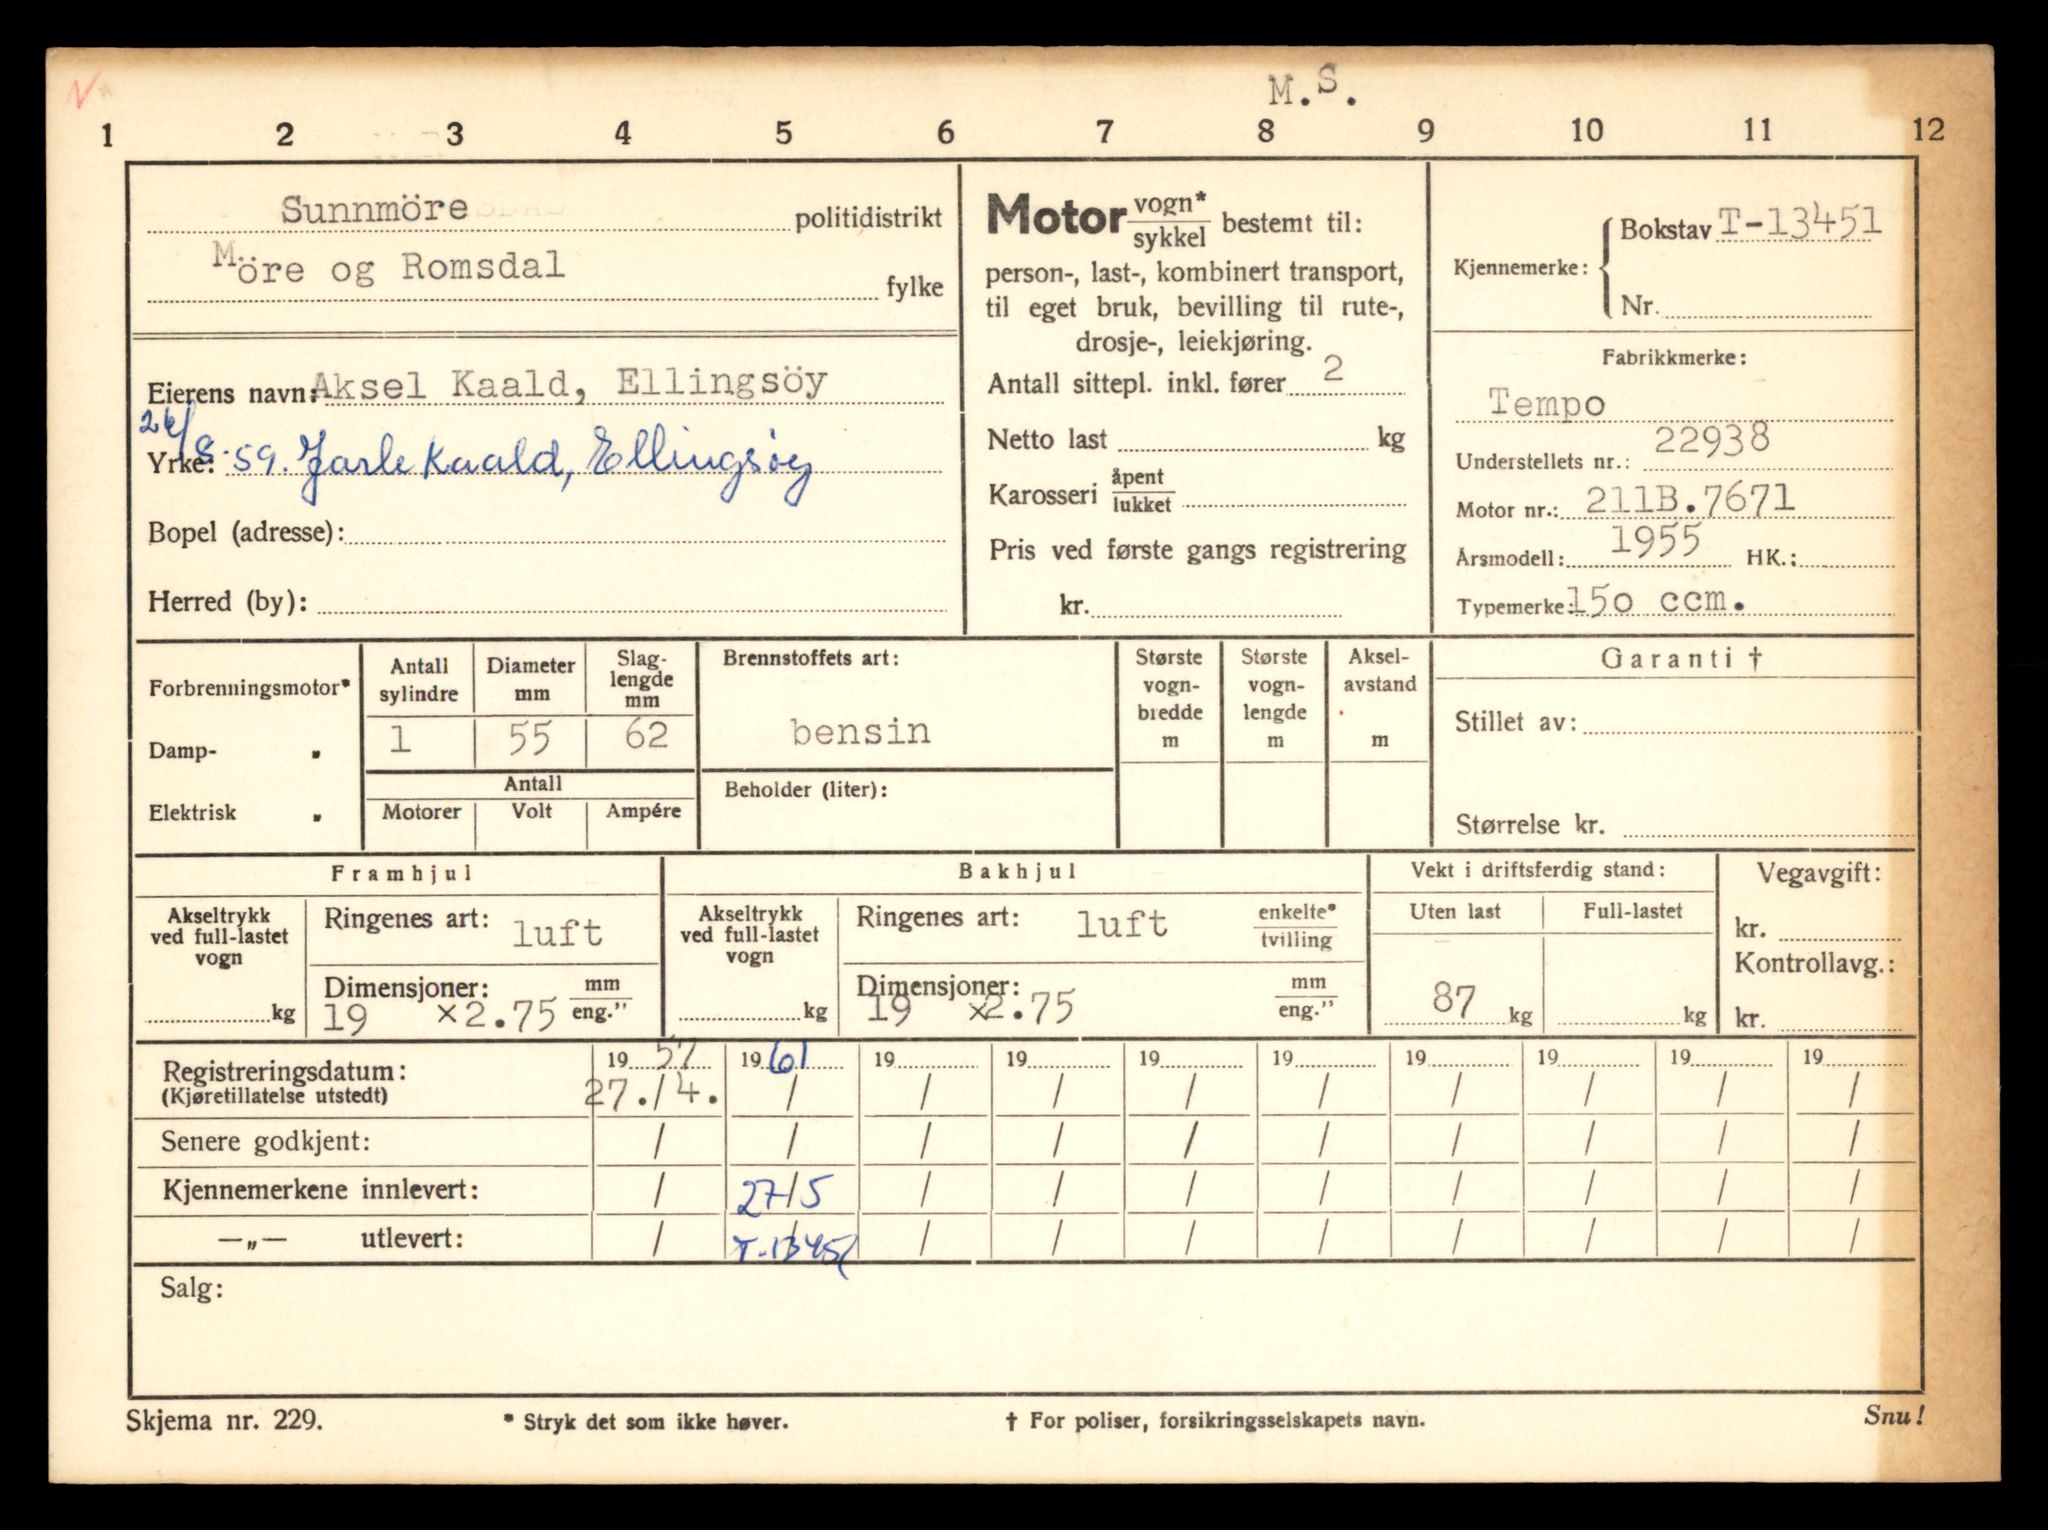 M.S.
1 2 3 4 5 6 7 8 9 10 11 12
Sunnmöre politidistrikt
Möre og Romsdal fylke
Eierens navn: Aksel Kaald, Ellingsöy
Yrke: 26/8-59. Jarle Kaald, Ellingsøy
Bopel (adresse):
Herred (by):
Motor vogn* / sykkel bestemt til:
person-, last-, kombinert transport,
til eget bruk, bevilling til rute-,
drosje-, leiekjøring.
Antall sittepl. inkl. fører 2
Netto last kg
Karosseri åpent / lukket
Pris ved første gangs registrering
kr.
Kjennemerke: Bokstav T-13451
Nr.
Fabrikkmerke:
Tempo
Understellets nr.: 22938
Motor nr.: 211B.7671
Årsmodell: 1955 HK.:
Typemerke: 150 ccm.
Forbrenningsmotor*
Damp- „
Elektrisk „
Antall sylindre Diameter mm Slaglengde mm
1 55 62
Antall
Motorer Volt Ampére
Brennstoffets art:
bensin
Beholder (liter):
Største vogn-bredde m
Største vogn-lengde m
Aksel-avstand m
Garanti †
Stillet av:
Størrelse kr.
Framhjul
Akseltrykk ved full-lastet vogn
kg
Ringenes art: luft
Dimensjoner: mm / eng."
19 x2.75
Bakhjul
Akseltrykk ved full-lastet vogn
kg
Ringenes art: luft enkelte* / tvilling
Dimensjoner: mm / eng."
19 x2.75
Vekt i driftsferdig stand:
Uten last Full-lastet
87 kg kg
Vegavgift:
kr.
Kontrollavg.:
kr.
19 57 19 61 19 19 19 19 19 19 19 19
Registreringsdatum: 27./4. / / / / / / / / /
(Kjøretillatelse utstedt)
Senere godkjent: / / / / / / / / / /
Kjennemerkene innlevert: / 27/5 / / / / / / / /
—„— utlevert: / T-13451 / / / / / / / /
Salg:
Skjema nr. 229. * Stryk det som ikke høver. † For poliser, forsikringsselskapets navn. Snu!